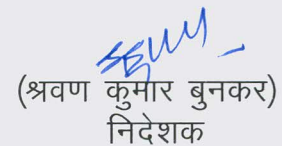 (श्रवण कुमार बुनकर)
निदेशक